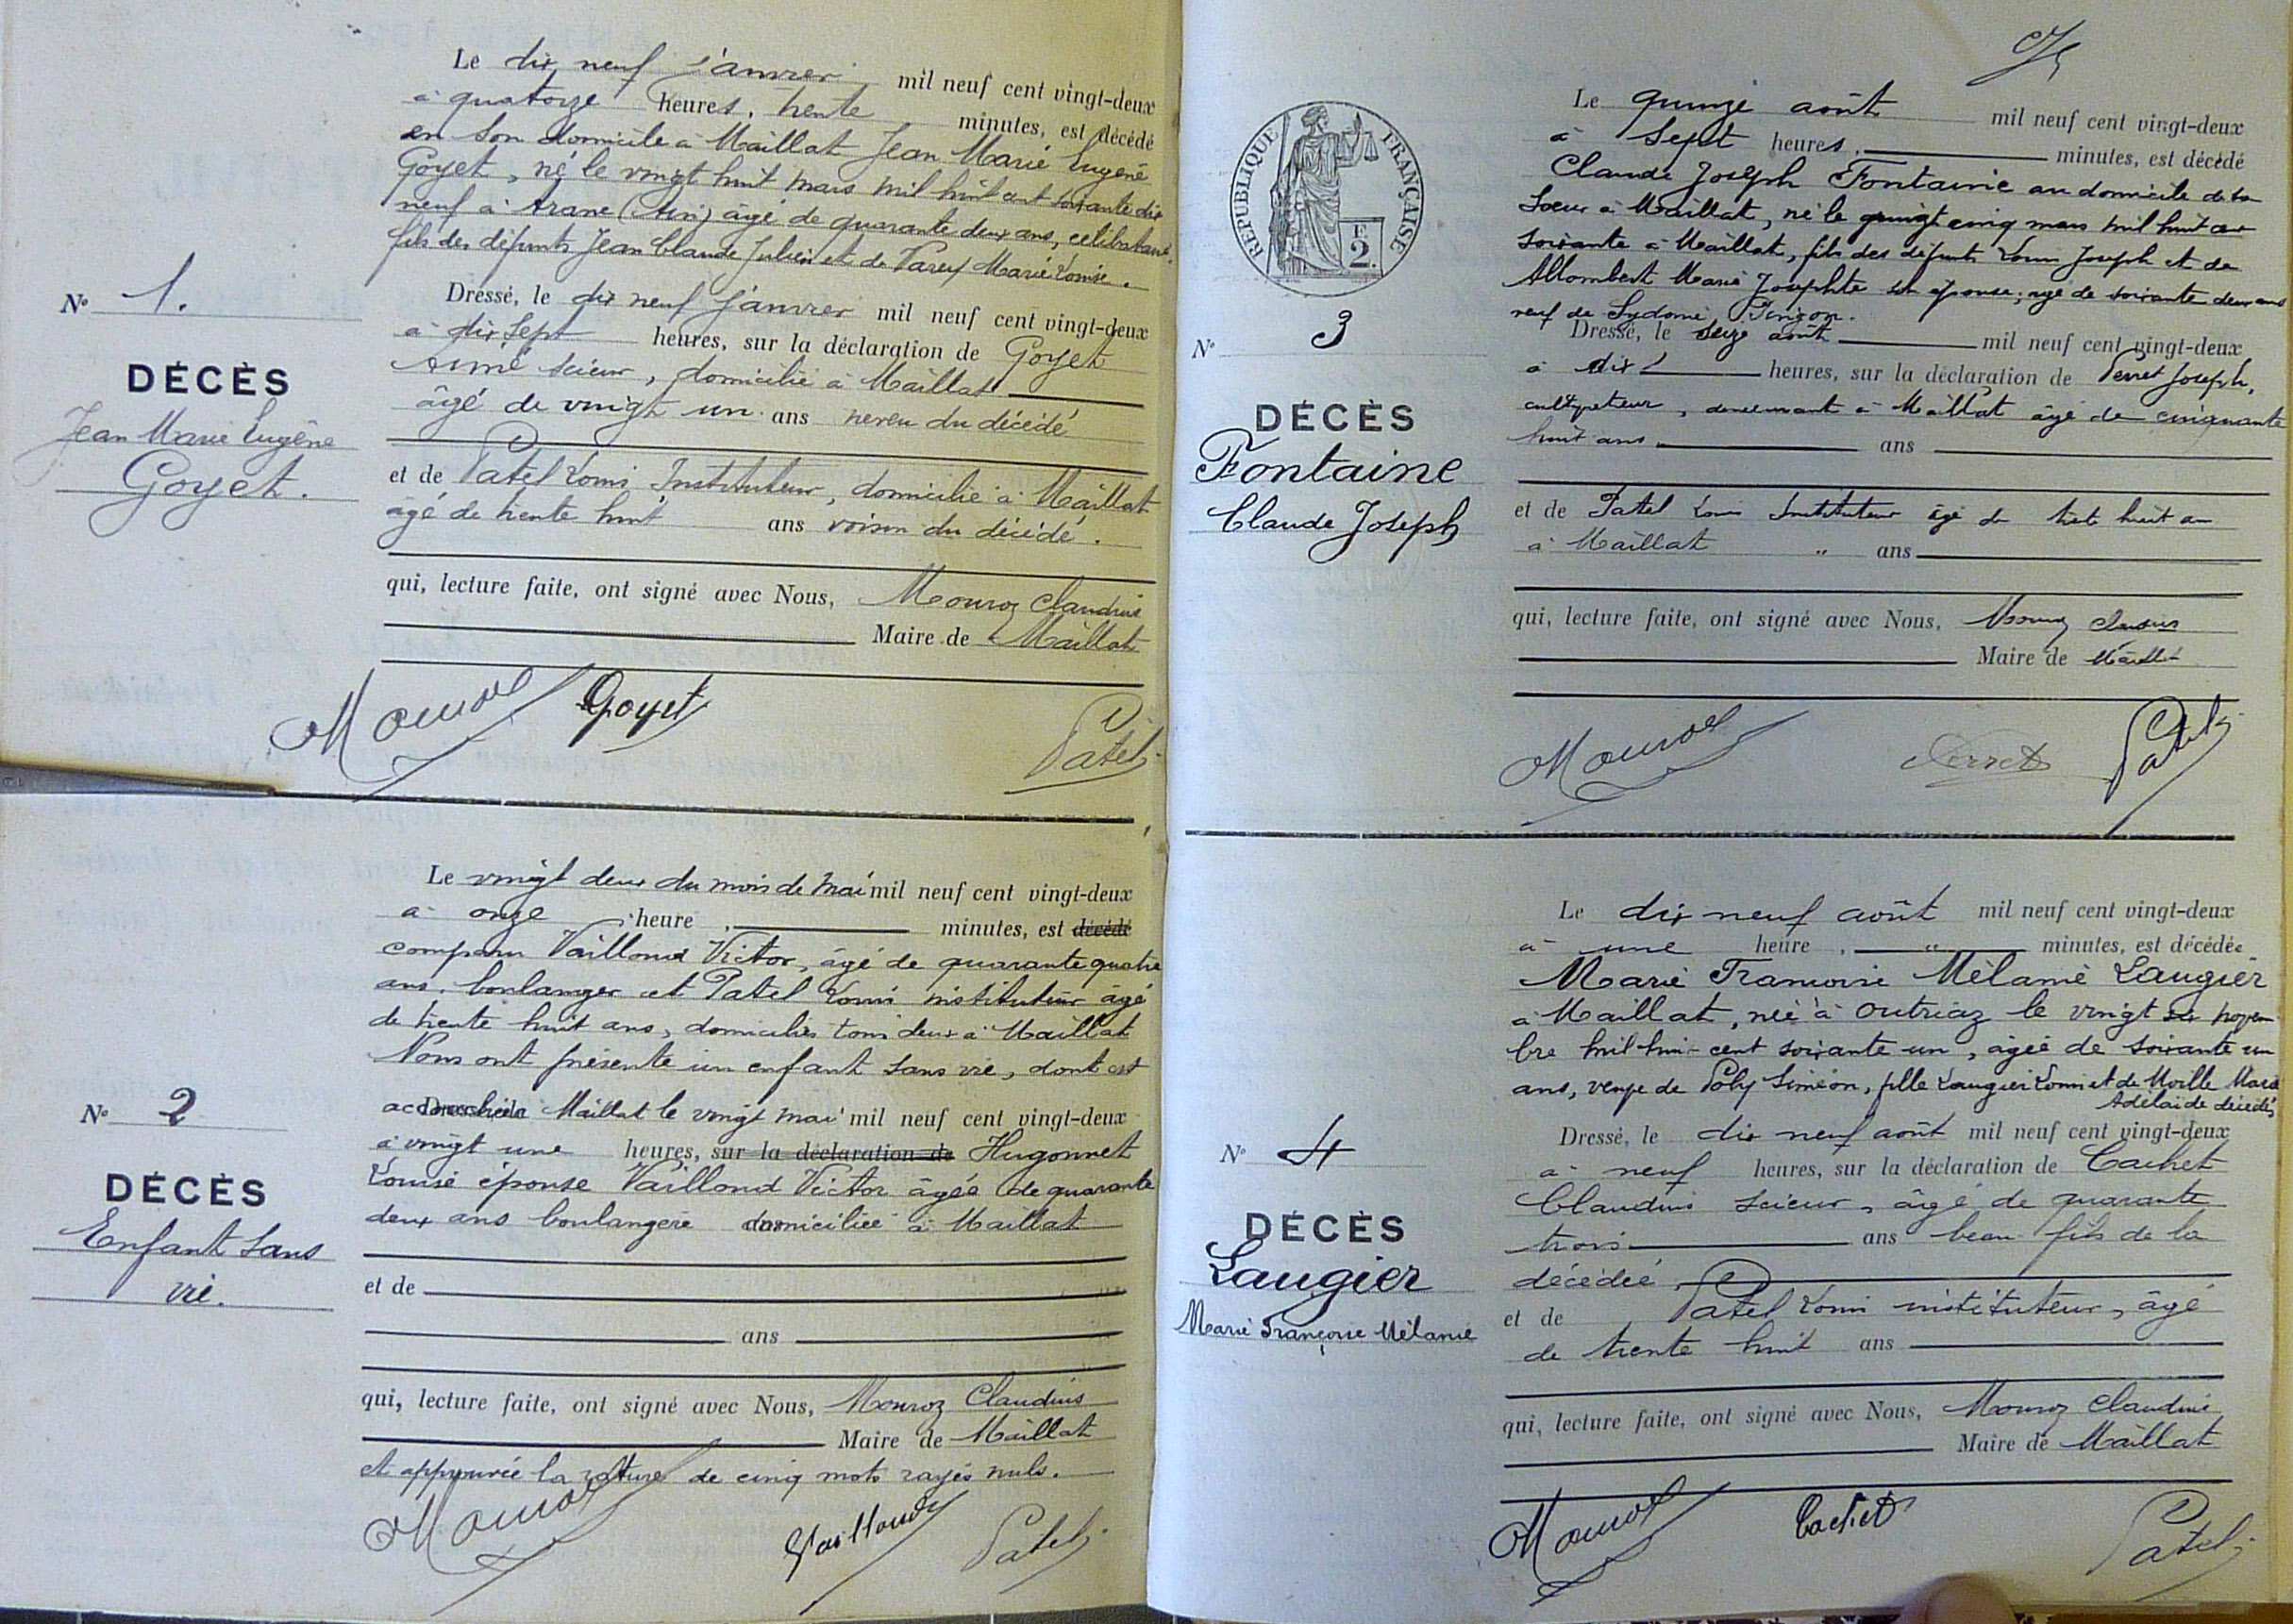 Le dix neuf janvier mil neuf cent vingt-deux
à quatorze heures, trente minutes, est décédé
en son domicile à Maillat Jean Marie Eugène
Goyet, né le vingt huit mars mil huit cent soixante dix
neuf à Arane (Ain) âgé de quarante deux ans, célibataire,
fils des défunts Jean Claude Julien et de Varey Marie Louise.
N° 1.
DÉCÈS
Jean Marie Eugène
Goyet.
Dressé, le dix neuf janvier mil neuf cent vingt-deux
à dix sept heures, sur la déclaration de Goyet
Aimé scieur, domicilié à Maillat
âgé de vingt un ans neveu du décédé
et de Patel Louis Instituteur, domicilié à Maillat
âgé de trente huit ans voisin du décédé.
qui, lecture faite, ont signé avec Nous, Mouroz Claudius
Maire de Maillat
Mouroz Goyet Patel
Le vingt deux du mois de mai mil neuf cent vingt-deux
à onze heure, minutes, est décédé
comparu Vaillond Victor, âgé de quarante quatre
ans, boulanger et Patel Louis instituteur âgé
de trente huit ans, domiciliés tous deux à Maillat
Nous ont présenté un enfant sans vie, dont est
N° 2
DÉCÈS
Enfant sans
vie.
accouchée à Maillat le vingt mai mil neuf cent vingt-deux
à vingt une heures, sur la déclaration de Hugonnet
Louise épouse Vaillond Victor âgée de quarante
deux ans boulangère domiciliée à Maillat
et de
ans
qui, lecture faite, ont signé avec Nous, Mouroz Claudius
Maire de Maillat
et approuvée la rature de cinq mots rayés nuls.
Mouroz Vaillond Patel
RÉPUBLIQUE FRANÇAISE
2
F
Le quinze août mil neuf cent vingt-deux
à sept heures, minutes, est décédé
Claude Joseph Fontaine au domicile de sa
soeur à Maillat, né le vingt cinq mars mil huit cent
soixante à Maillat, fils des défunts Louis Joseph et de
Allombert Marie Josephte son épouse; âgé de soixante deux ans
veuf de Sydonie
N° 3
DÉCÈS
Fontaine
Claude Joseph
Dressé, le seize août mil neuf cent vingt-deux
à dix heures, sur la déclaration de Perret Joseph,
cultivateur, demeurant à Maillat âgé de cinquante
huit ans ans
et de Patel Louis Instituteur âgé de trente huit ans
à Maillat " ans
qui, lecture faite, ont signé avec Nous, Mouroz Claudius
Maire de Maillat
Mouroz Perret Patel
Le dix neuf août mil neuf cent vingt-deux
à une heure, " minutes, est décédée
Marie Francoise Mélanie Laugier
à Maillat, née à Outriaz le vingt six novem
bre mil huit cent soixante un, âgée de soixante un
ans, veuve de Poly Siméon, fille Laugier Louis et de Moille Marie
Adélaïde décédés
N° 4
DÉCÈS
Laugier
Marie Françoise Mélanie
Dressé, le dix neuf août mil neuf cent vingt-deux
à neuf heures, sur la déclaration de Cachet
Claudius scieur, âgé de quarante
trois ans beau-fils de la
décédée
et de Patel Louis instituteur, âgé
de trente huit ans
qui, lecture faite, ont signé avec Nous, Mouroz Claudius
Maire de Maillat
Mouroz Cachet Patel